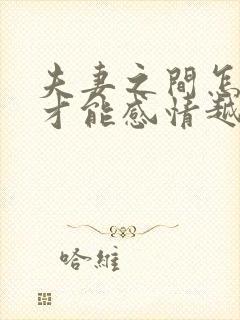 夫妻之间怎
才能感情越
哈維